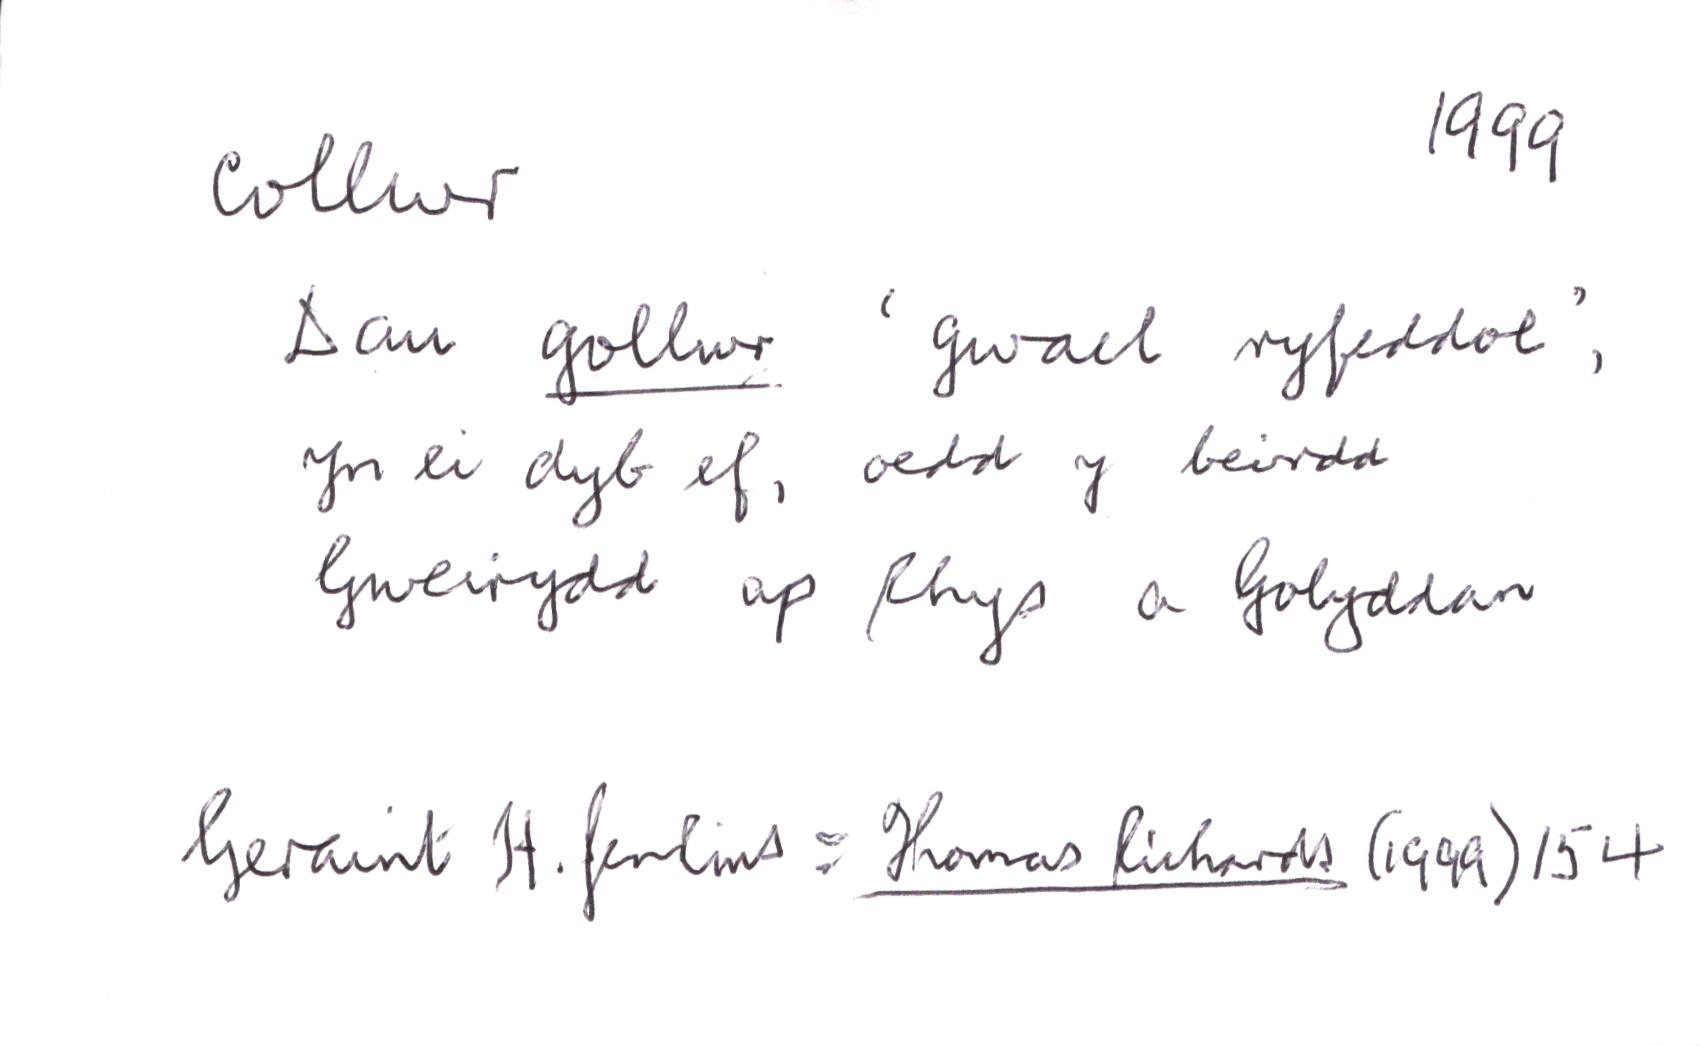 1999
collwr
Dau gollwr 'gwael ryfeddol',
yn ei dyb ef, oedd y beirdd
Gweirydd ap Rhys a Golyddan
Geraint H. Jenkins: Thomas Richards (1999) 154